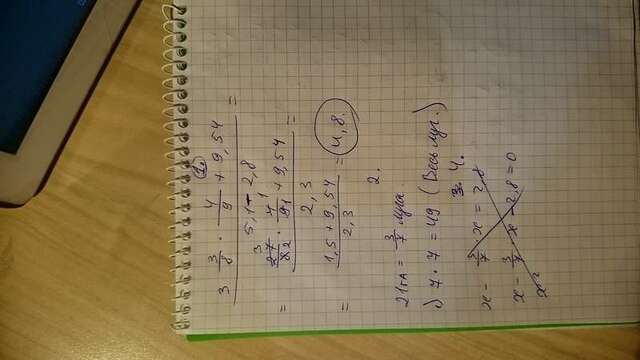 1.
3 3/8 · 4/9 + 9,54
5,1 - 2,8 =
= 27/8 3 2 · 4/9 1 1 + 9,54
2,3 =
= 1,5 + 9,54 / 2,3 = 4,8.
2.
21га = 3/7 луга
1) 7 · 7 = 49 (Весь луг.)
3 4.
x - 3/7 x = 2,8
x - 3/7 · x - 2,8 = 0
x²